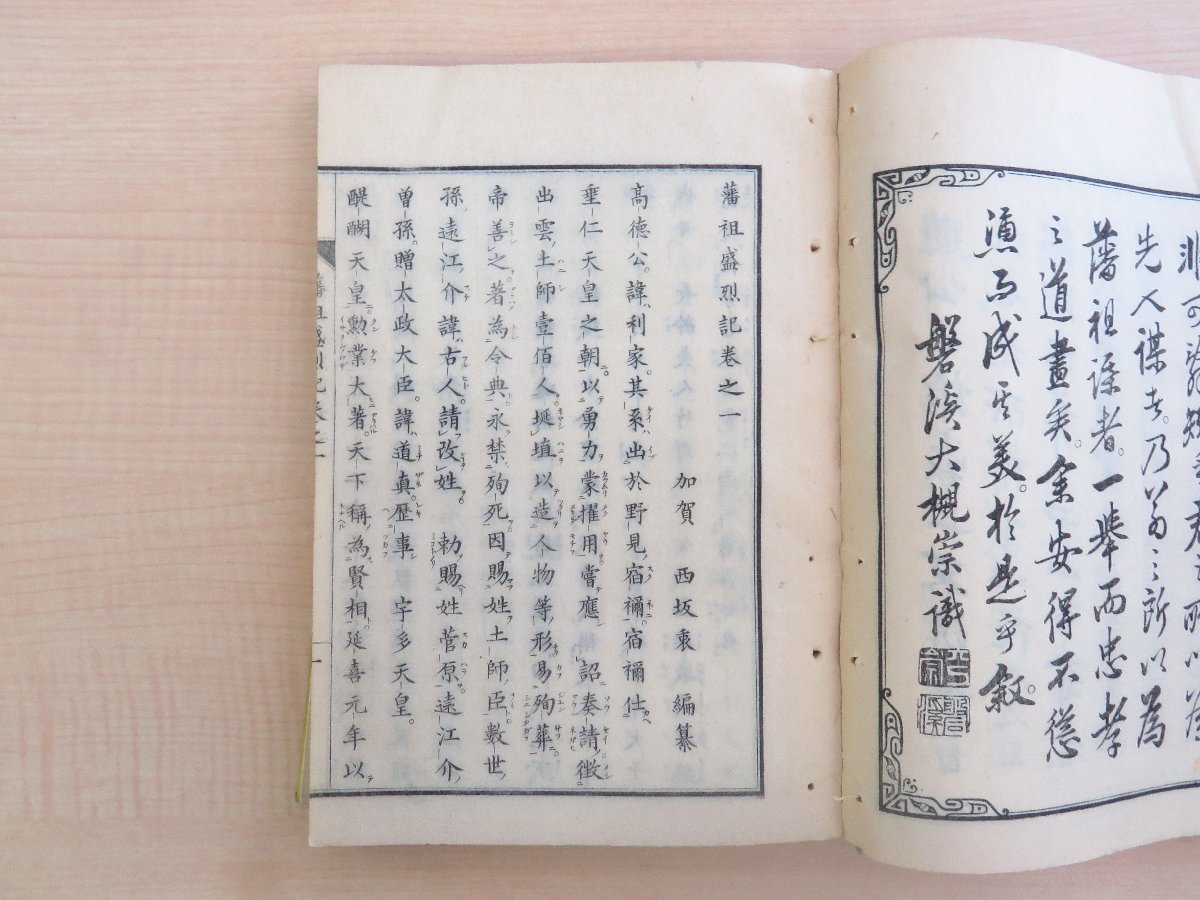 先人謀者。乃翁之所以為
藩祖謀者。一舉而忠孝
之道盡矣。余安得不慫
慂而成其美。於是乎敘。
磐溪大槻崇識
藩祖盛烈記卷之一
加賀 西坂衷 編纂
高德公。諱利家。其系出於野見宿禰。宿禰仕
垂仁天皇之朝。以勇力蒙擢用嘗應詔奏請徵
出雲土師壹佰人。埏埴以造人物等形易殉葬。
帝善之。著為令典。永禁殉死因賜姓土師臣數世
孫。遠江介諱古人。請改姓。勅賜姓菅原遠江介
曾孫。贈太政大臣。諱道真。歷事宇多天皇。
醍醐天皇勲業大著。天下稱為賢相延喜元年以